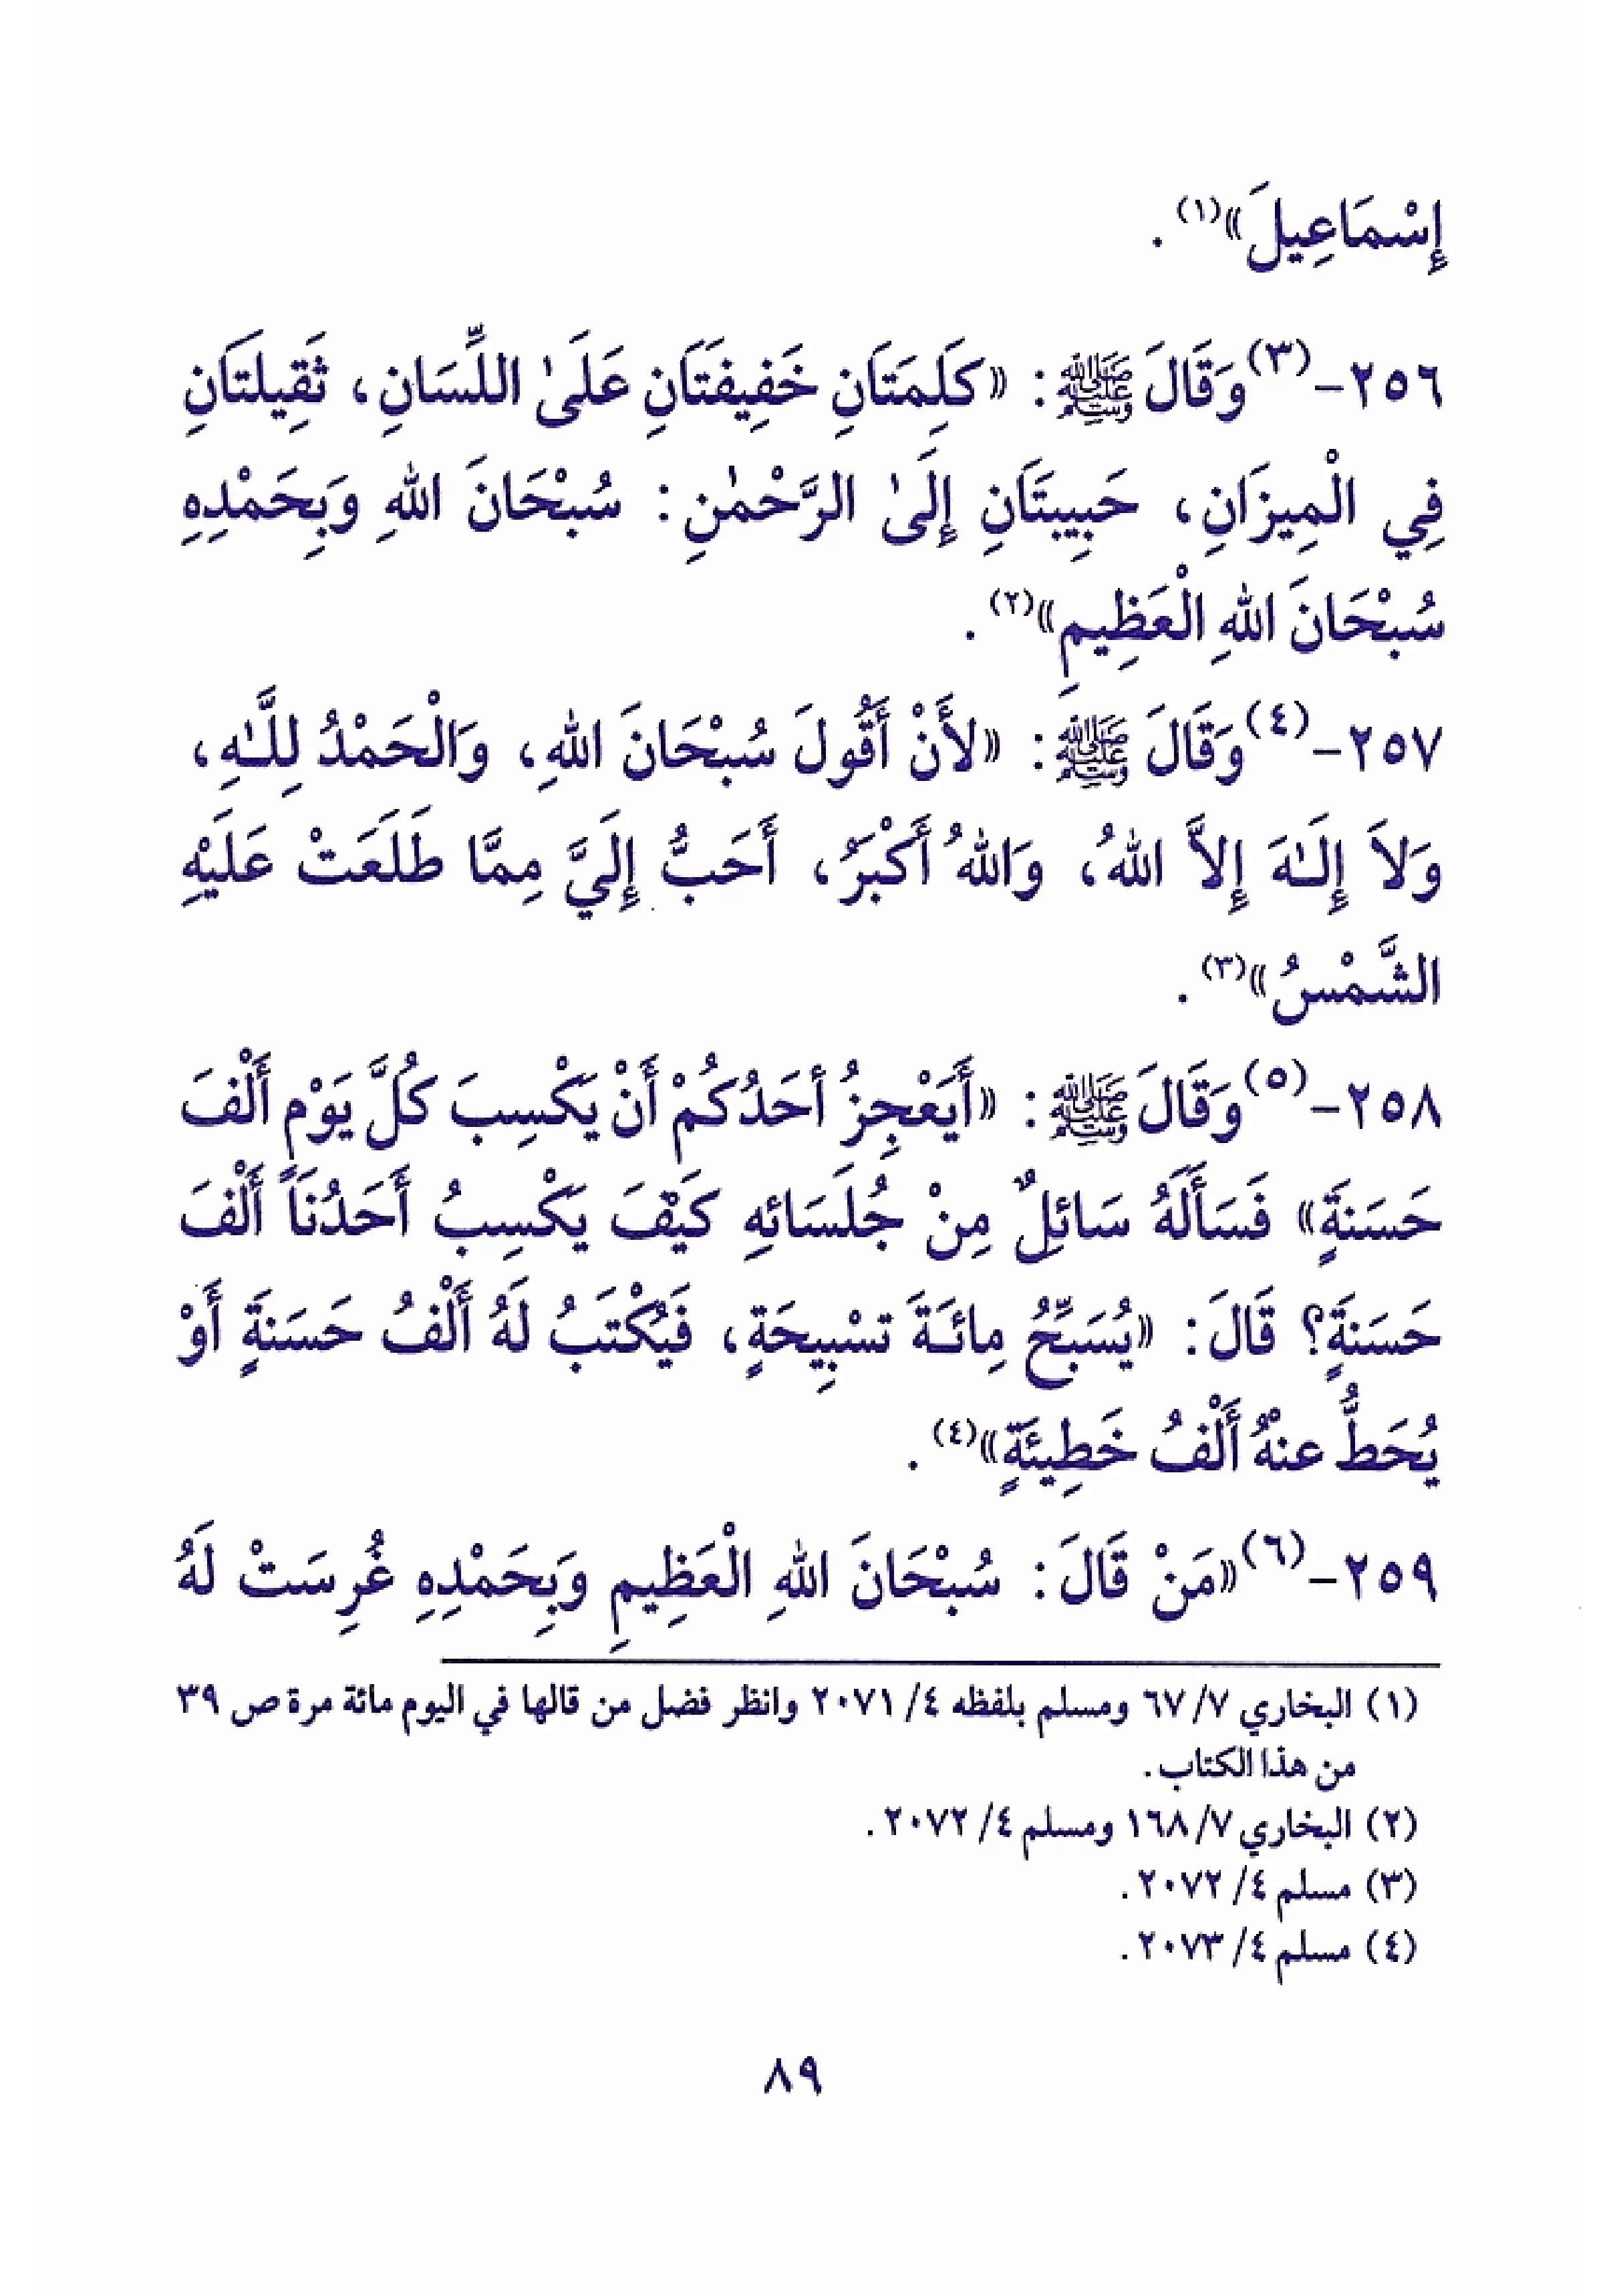 إِسْمَاعِيلَ»(١) .
٢٥٦-(٣) وَقَالَ ﷺ : «كَلِمَتَانِ خَفِيفَتَانِ عَلَىٰ اللِّسَانِ، ثَقِيلَتَانِ
فِي الْمِيزَانِ، حَبِيبَتَانِ إِلَىٰ الرَّحْمٰنِ : سُبْحَانَ اللهِ وَبِحَمْدِهِ
سُبْحَانَ اللهِ الْعَظِيمِ»(٢) .
٢٥٧-(٤) وَقَالَ ﷺ : «لأَنْ أَقُولَ سُبْحَانَ اللهِ، وَالْحَمْدُ لِلَّـٰهِ،
وَلاَ إِلَـٰهَ إِلاَّ اللهُ، وَاللهُ أَكْبَرُ، أَحَبُّ إِلَيَّ مِمَّا طَلَعَتْ عَلَيْهِ
الشَّمْسُ»(٣) .
٢٥٨-(٥) وَقَالَ ﷺ : «أَيَعْجِزُ أحَدُكُمْ أَنْ يَكْسِبَ كُلَّ يَوْمٍ أَلْفَ
حَسَنَةٍ» فَسَأَلَهُ سَائِلٌ مِنْ جُلَسَائهِ كَيْفَ يَكْسِبُ أَحَدُنَا أَلْفَ
حَسَنَةٍ؟ قَالَ : «يُسَبِّحُ مِائَـةَ تسْبِيحَةٍ، فَيُكْتَبُ لَهُ أَلْفُ حَسَنَةٍ أَوْ
يُحَطُّ عنْهُ أَلْفُ خَطِيئَةٍ»(٤) .
٢٥٩-(٦) «مَنْ قَالَ : سُبْحَانَ اللهِ الْعَظِيمِ وَبِحَمْدِهِ غُرِسَتْ لَهُ
(١) البخاري ٧/ ٦٧ ومسلم بلفظه ٤/ ٢٠٧١ وانظر فضل من قالها في اليوم مائة مرة ص ٣٩
من هذا الكتاب .
(٢) البخاري ٧/ ١٦٨ ومسلم ٤/ ٢٠٧٢ .
(٣) مسلم ٤/ ٢٠٧٢ .
(٤) مسلم ٤/ ٢٠٧٣ .
٨٩